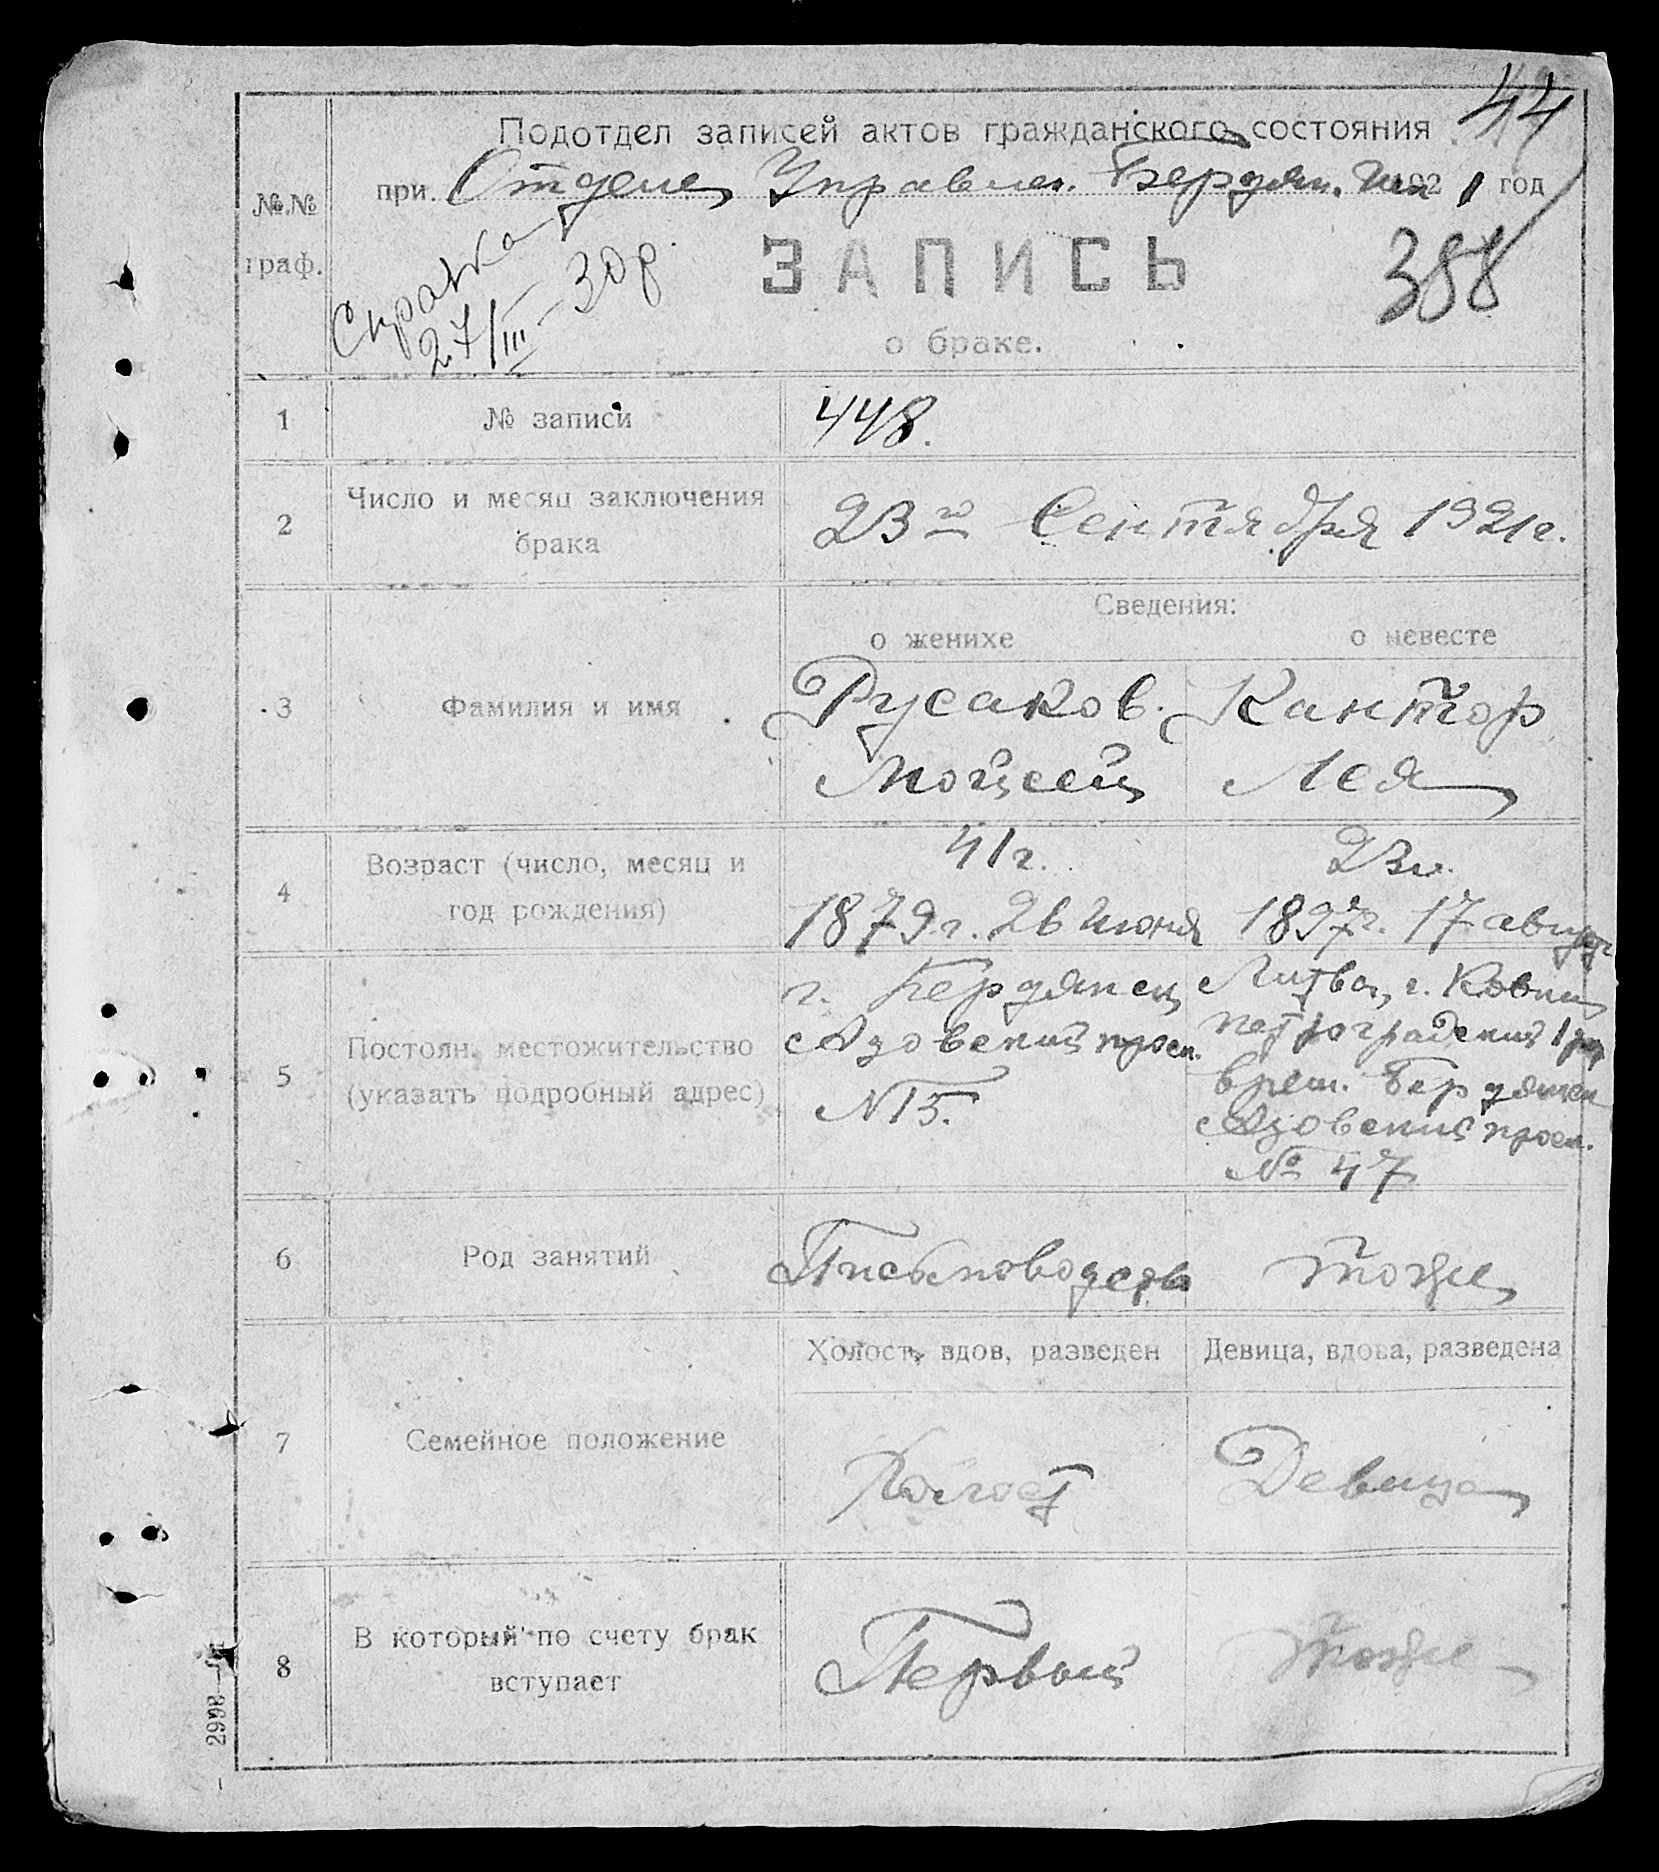 44
Подотдел записей актов гражданского состояния
при Отделе Управлен. Бердян. 1921 год
№№
граф.
Справка
27/III - 30 р.
ЗАПИСЬ
388
о браке.
1 № записи 448.
2 Число и месяц заключения брака 23го Сентября 1921 г.
Сведения:
о женихе о невесте
3 Фамилия и имя
Русаков Кантор
Мойсей Лея
4 Возраст (число, месяц и год рождения)
41 г. 23 л.
1879 г. 26 июня 1897 г. 17 август
5 Постоян. местожительство (указать подробный адрес)
г. Бердянск Литва, г. Ковна
Азовский просп. петроградский
N 15. врем. Бердянск
Азовский просп.
№ 47
6 Род занятий
Письмоводство тоже
Холост, вдов, разведен Девица, вдова, разведена
7 Семейное положение
Холост Девица
8 В который по счету брак вступает
Первый тоже
2998